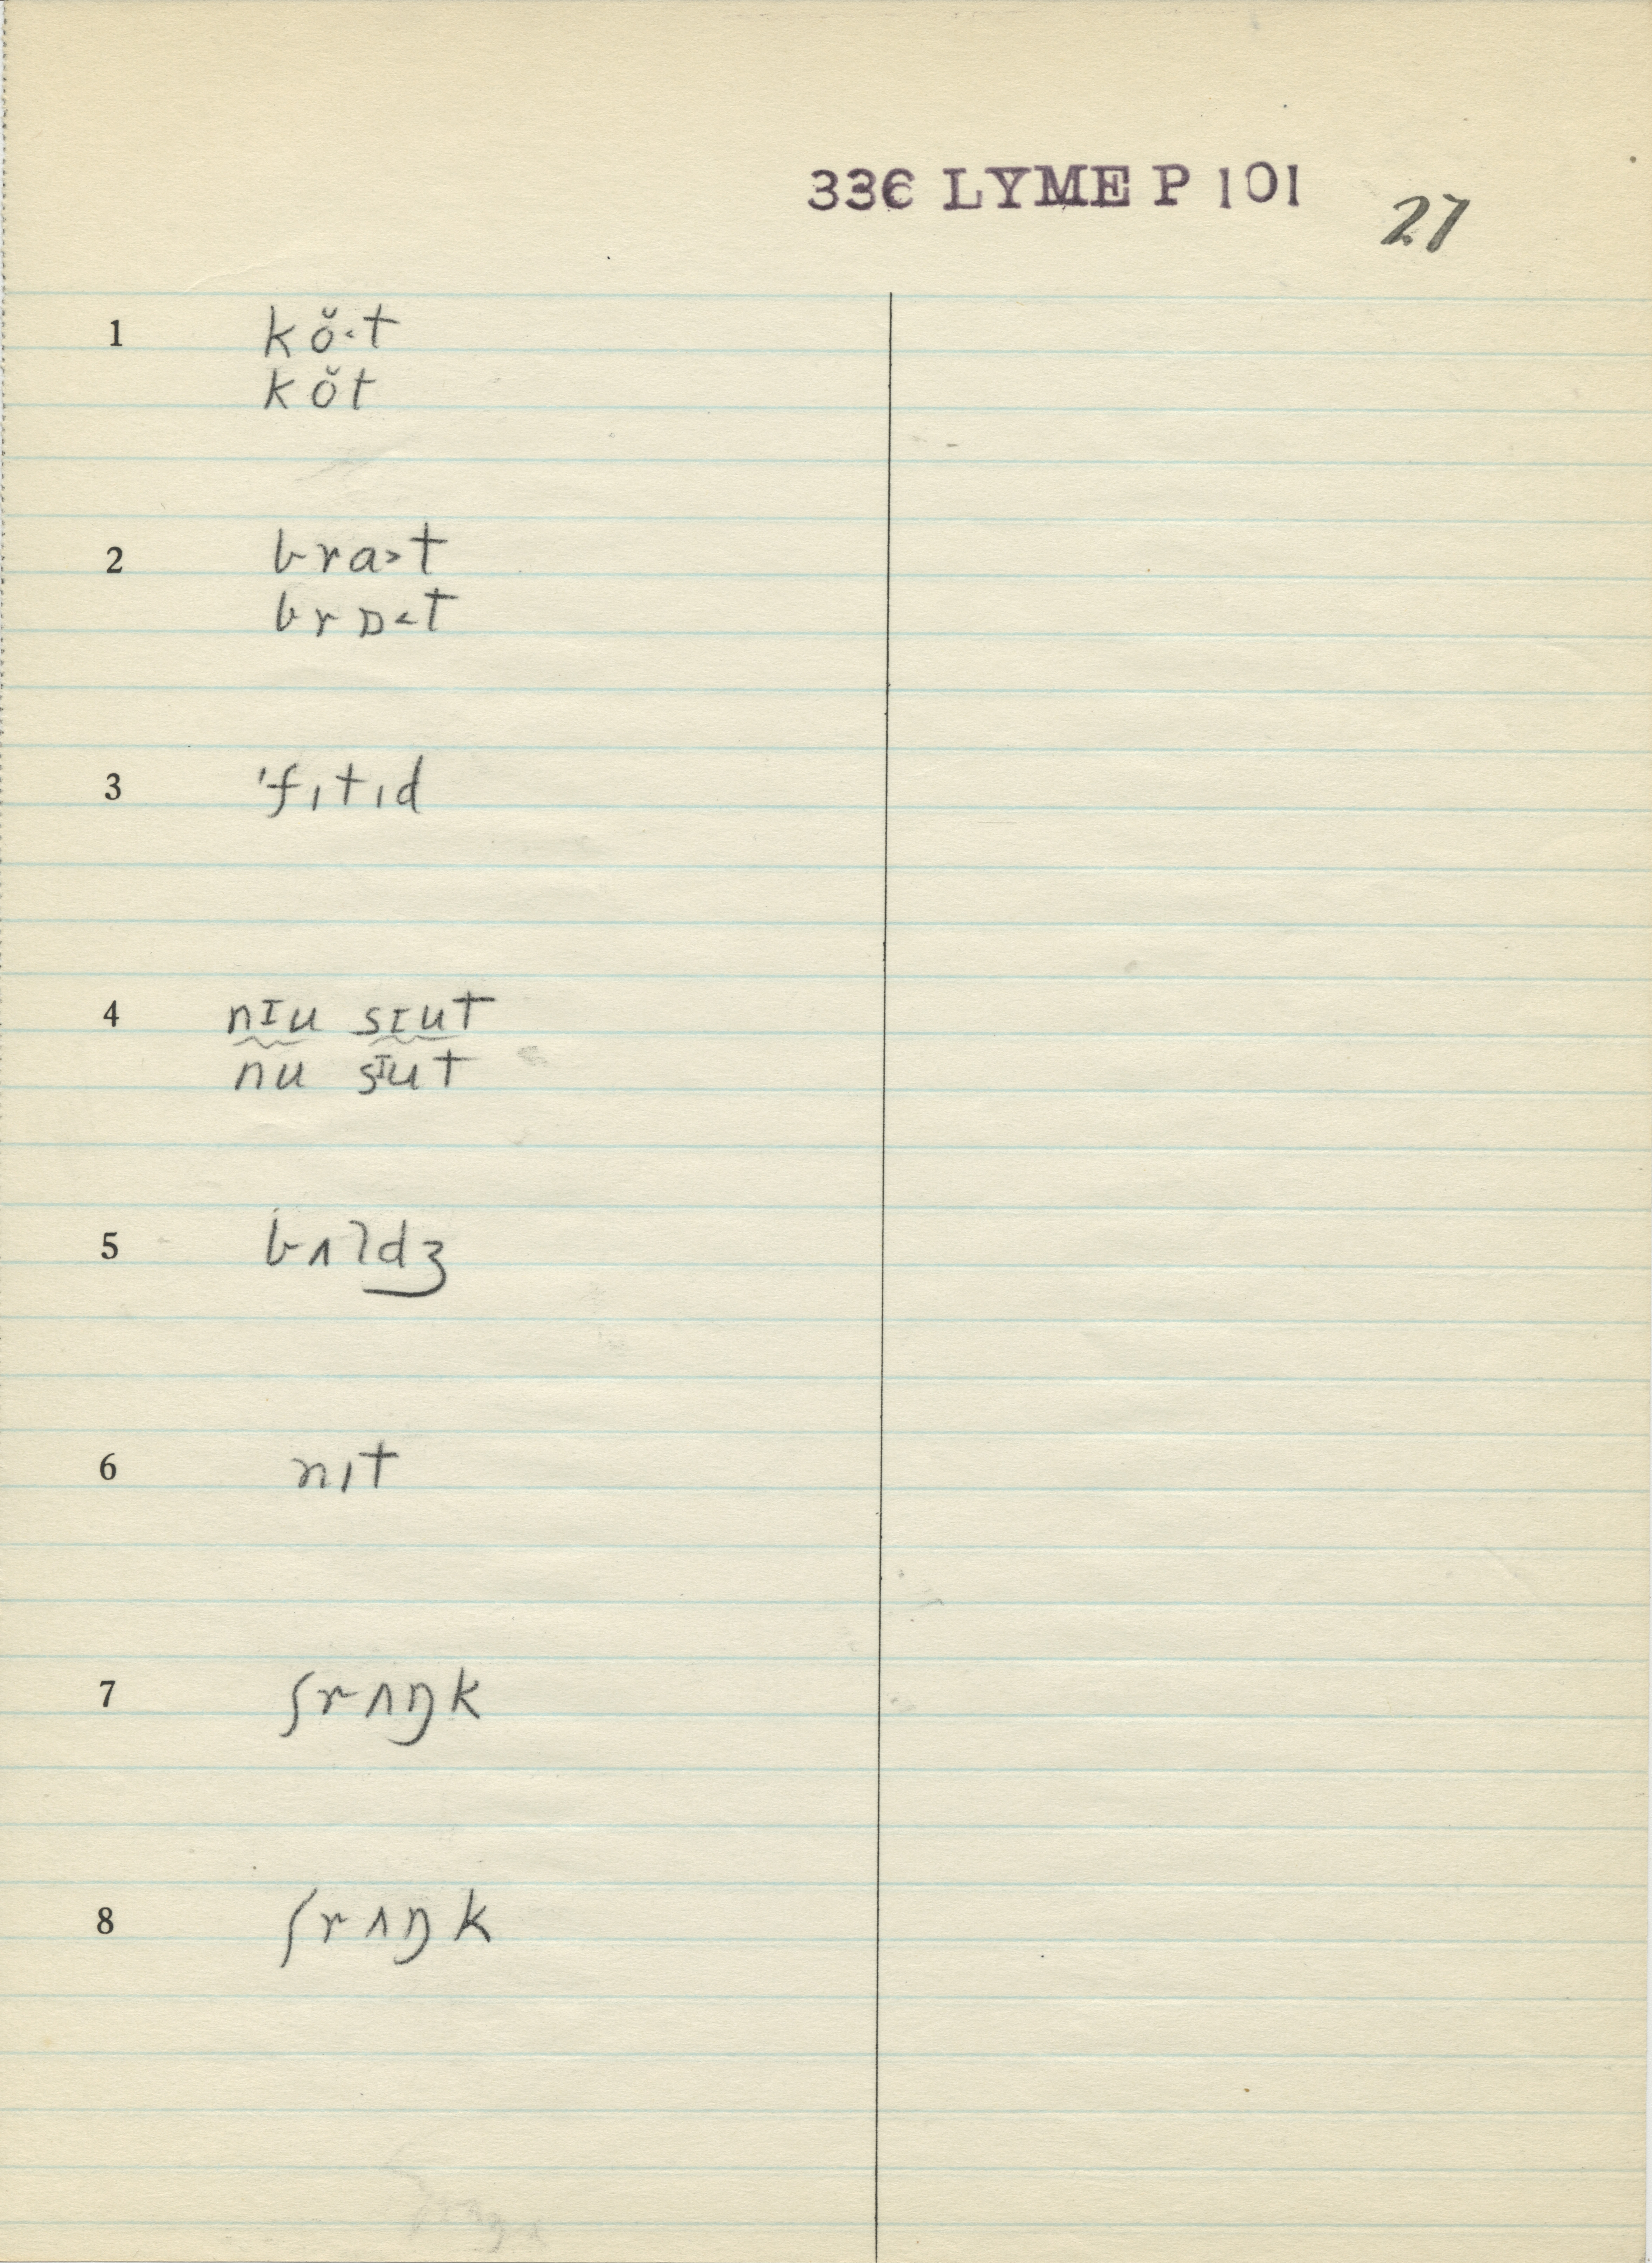 336 LYME P 101
27
1 kŏ˂t
kŏt
2 bra˃t
brɒ˂t
3 ˈfɪtɪd
4 nɪu sɪut
nu sɪut
5 bʌldʒ
6 nɪt
7 ʃrʌŋk
8 ʃrʌŋk